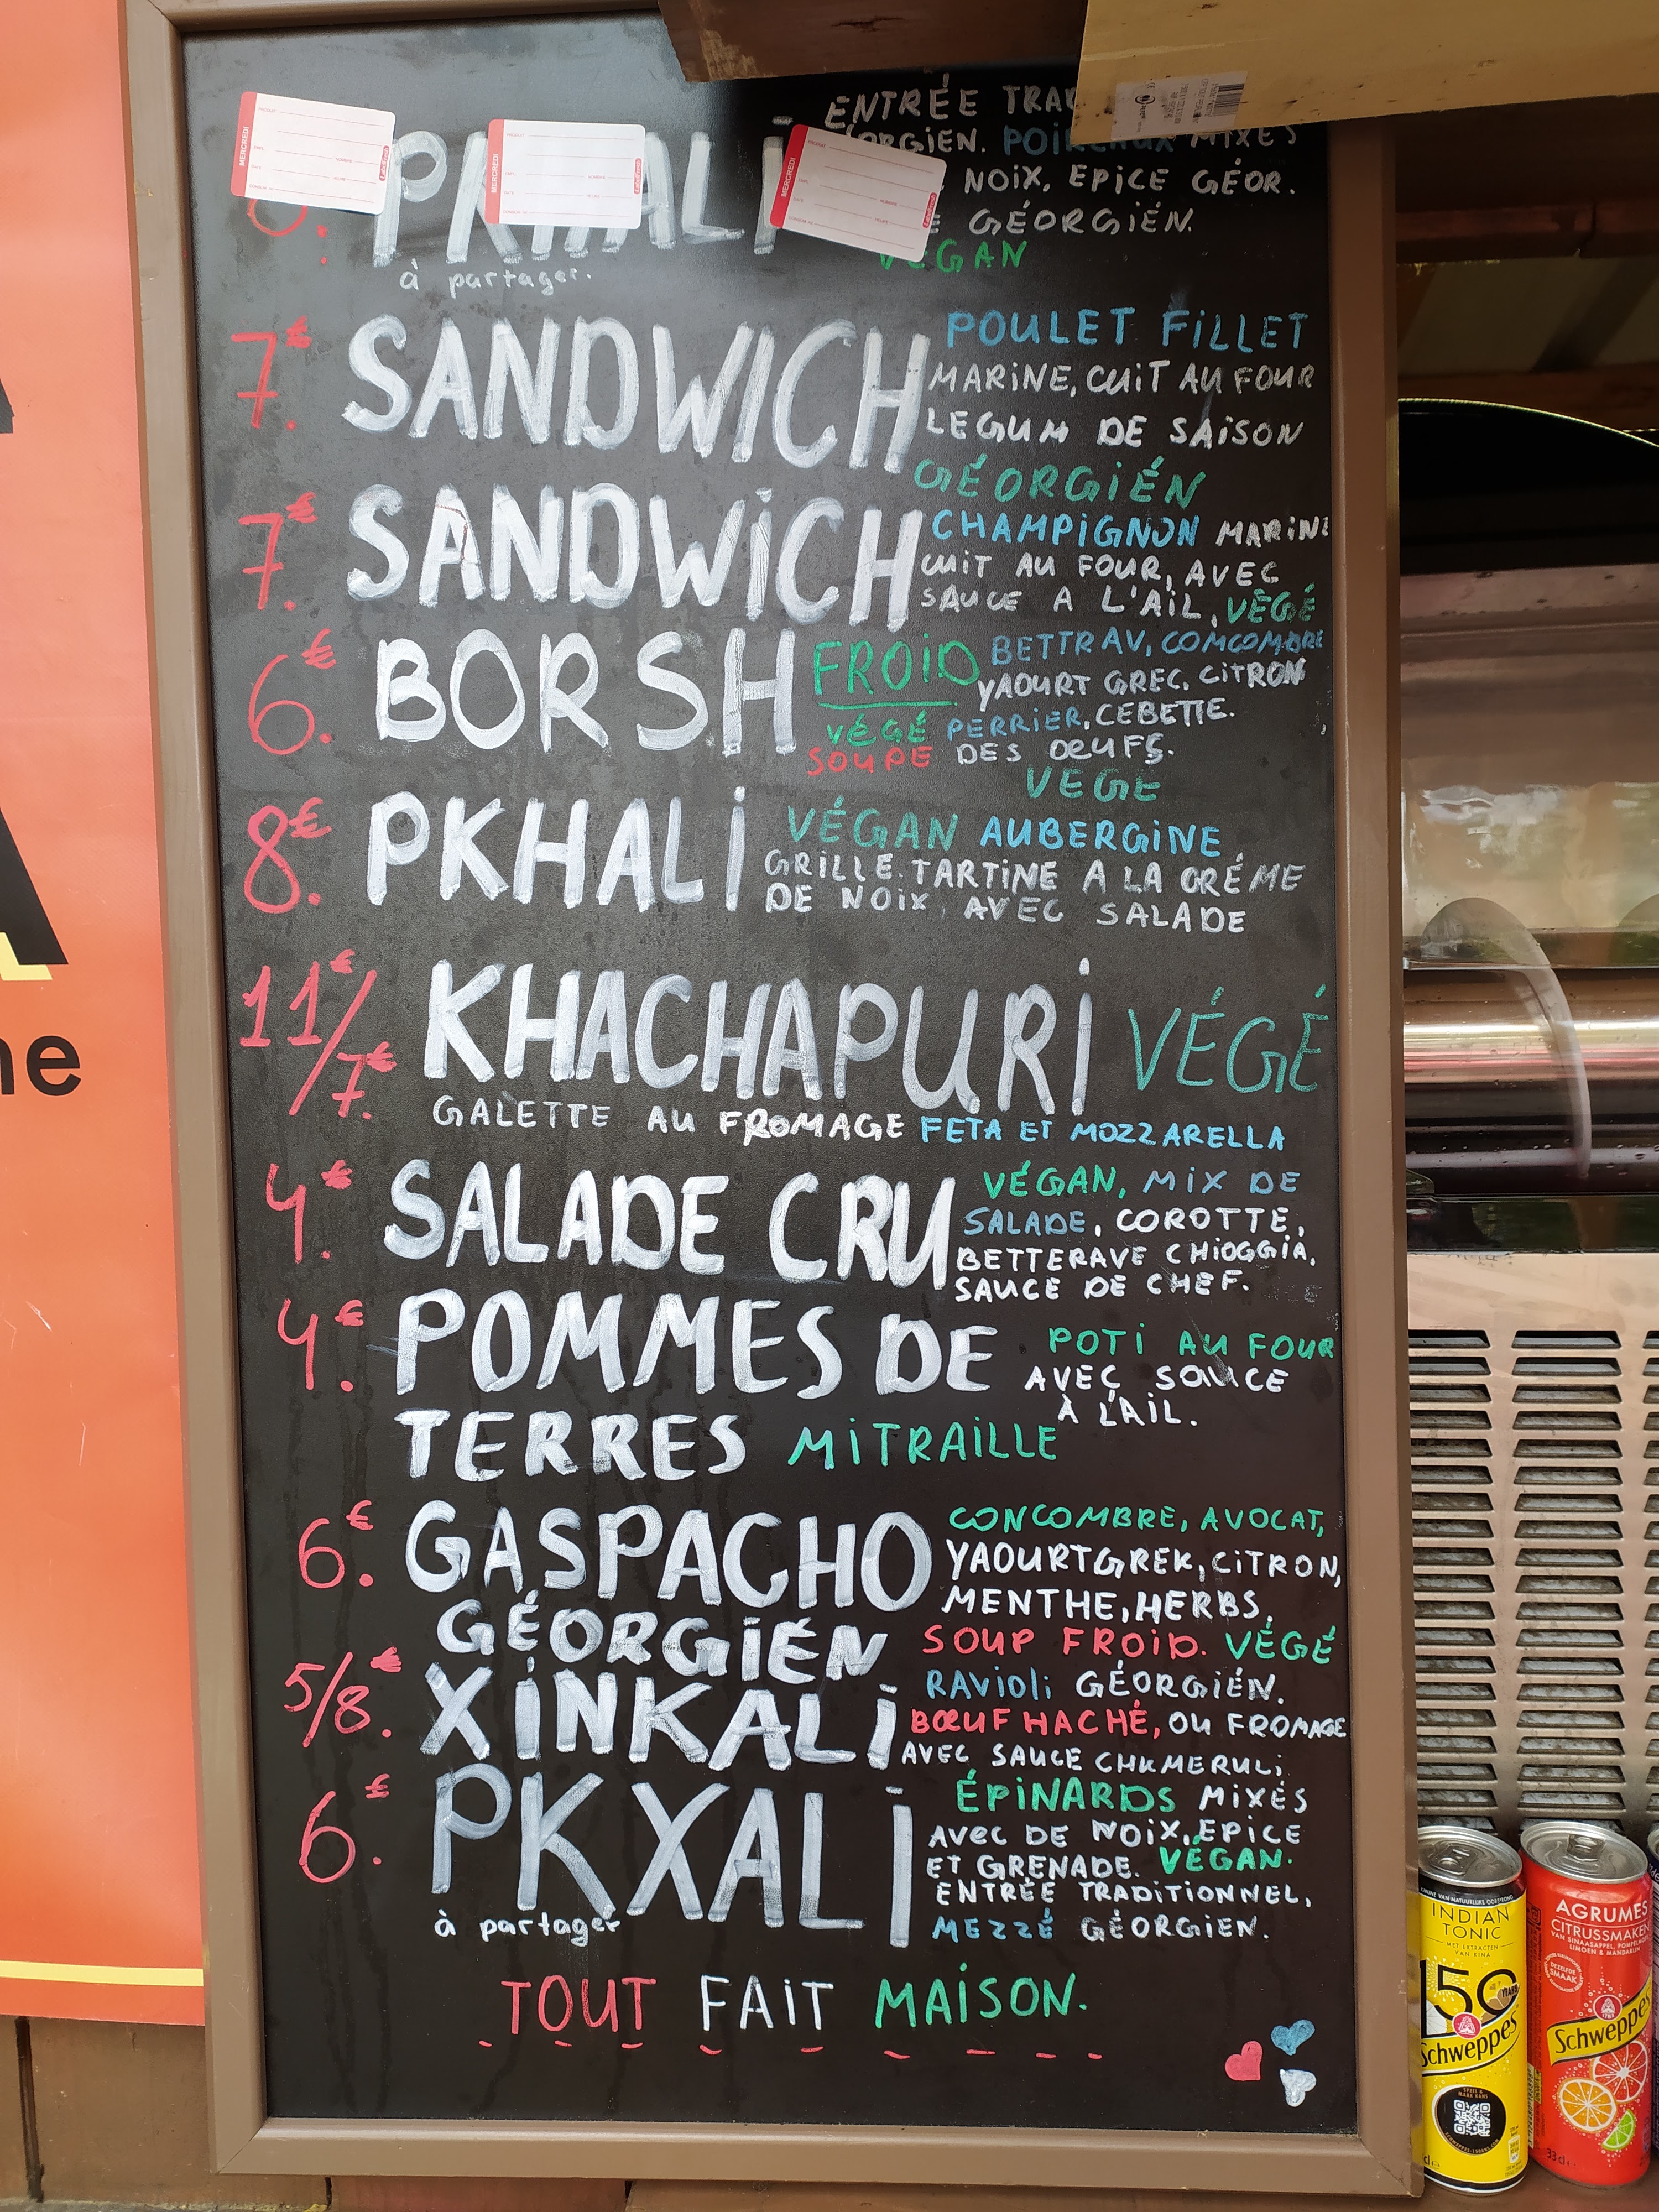 ENTRÉE
POIREAUX MIXÉS
NOIX, EPICE GÉOR.
PKHALI
GÉORGIÉN.
VÉGAN
à partager.
7€. SANDWICH POULET FILLET
MARINE, CUIT AU FOUR
LEGUM DE SAISON
GÉORGIÉN
7€. SANDWICH CHAMPIGNON MARINÉ
CUIT AU FOUR, AVEC
SAUCE A L'AIL, VÉGÉ
6€. BORSH FROID BETTRAV, COMCOMBRE
YAOURT GREC, CITRON
VÉGÉ PERRIER, CEBETTE.
SOUPE DES OEUFS.
VEGE
8€. PKHALI VÉGAN AUBERGINE
GRILLE. TARTINE A LA CRÉME
DE NOIX, AVEC SALADE
11€/7€. KHACHAPURI VÉGÉ
GALETTE AU FROMAGE FETA ET MOZZARELLA
4€. SALADE CRU VÉGAN, MIX DE
SALADE, COROTTE,
BETTERAVE CHIOGGIA,
SAUCE DE CHEF.
4€. POMMES DE POTI AU FOUR
AVEC SAUCE
À L'AIL.
TERRES MITRAILLE
6€. GASPACHO CONCOMBRE, AVOCAT,
YAOURT GREK, CITRON,
MENTHE, HERBS,
GÉORGIÉN SOUP FROID. VÉGÉ
5/8€. XINKALI RAVIOLI GÉORGIÉN.
BŒUF HACHÉ, OU FROMAGE
AVEC SAUCE CHKMERULI
6€. PKXALI ÉPINARDS MIXÉS
AVEC DE NOIX, EPICE
ET GRENADE. VÉGAN.
ENTRÉE TRADITIONNEL,
à partager MEZZÉ GÉORGIEN.
TOUT FAIT MAISON.
MERCREDI
MERCREDI
MERCREDI
ne
INDIAN
TONIC
150
Schweppes
AGRUMES
CITRUSSMAKEN
Schweppes
33cl